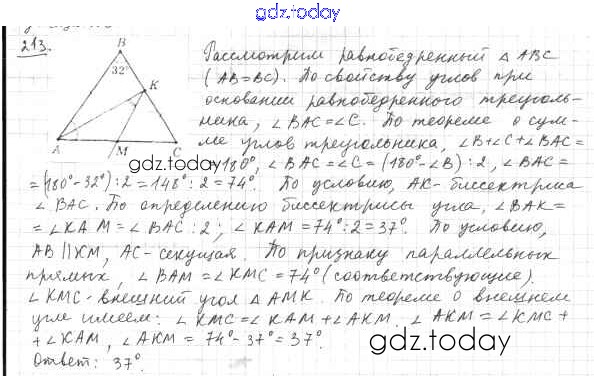 gdz.today
213.
B
32°
K
A
M
C
Рассмотрим равнобедренный △ ABC
(AB=BC). По свойству углов при
основании равнобедренного треуголь-
ника, ∠BAC=∠C. По теореме о сум-
ме углов треугольника, ∠B+∠C+∠BAC=
gdz.today
=180°, ∠BAC=∠C=(180°-∠B):2, ∠BAC=
=(180°-32°):2=148°:2=74°. По условию, AK-биссектриса
∠BAC. По определению биссектрисы угла, ∠BAK=
=∠KAM=∠BAC:2; ∠KAM=74°:2=37°. По условию,
AB∥KM, AC-секущая. По признаку параллельных
прямых, ∠BAM=∠KMC=74° (соответствующие).
∠KMC-внешний угол △AMK. По теореме о внешнем
угле имеем: ∠KMC=∠KAM+∠AKM, ∠AKM=∠KMC+
+∠KAM, ∠AKM=74°-37°=37°.
Ответ: 37°.
gdz.today